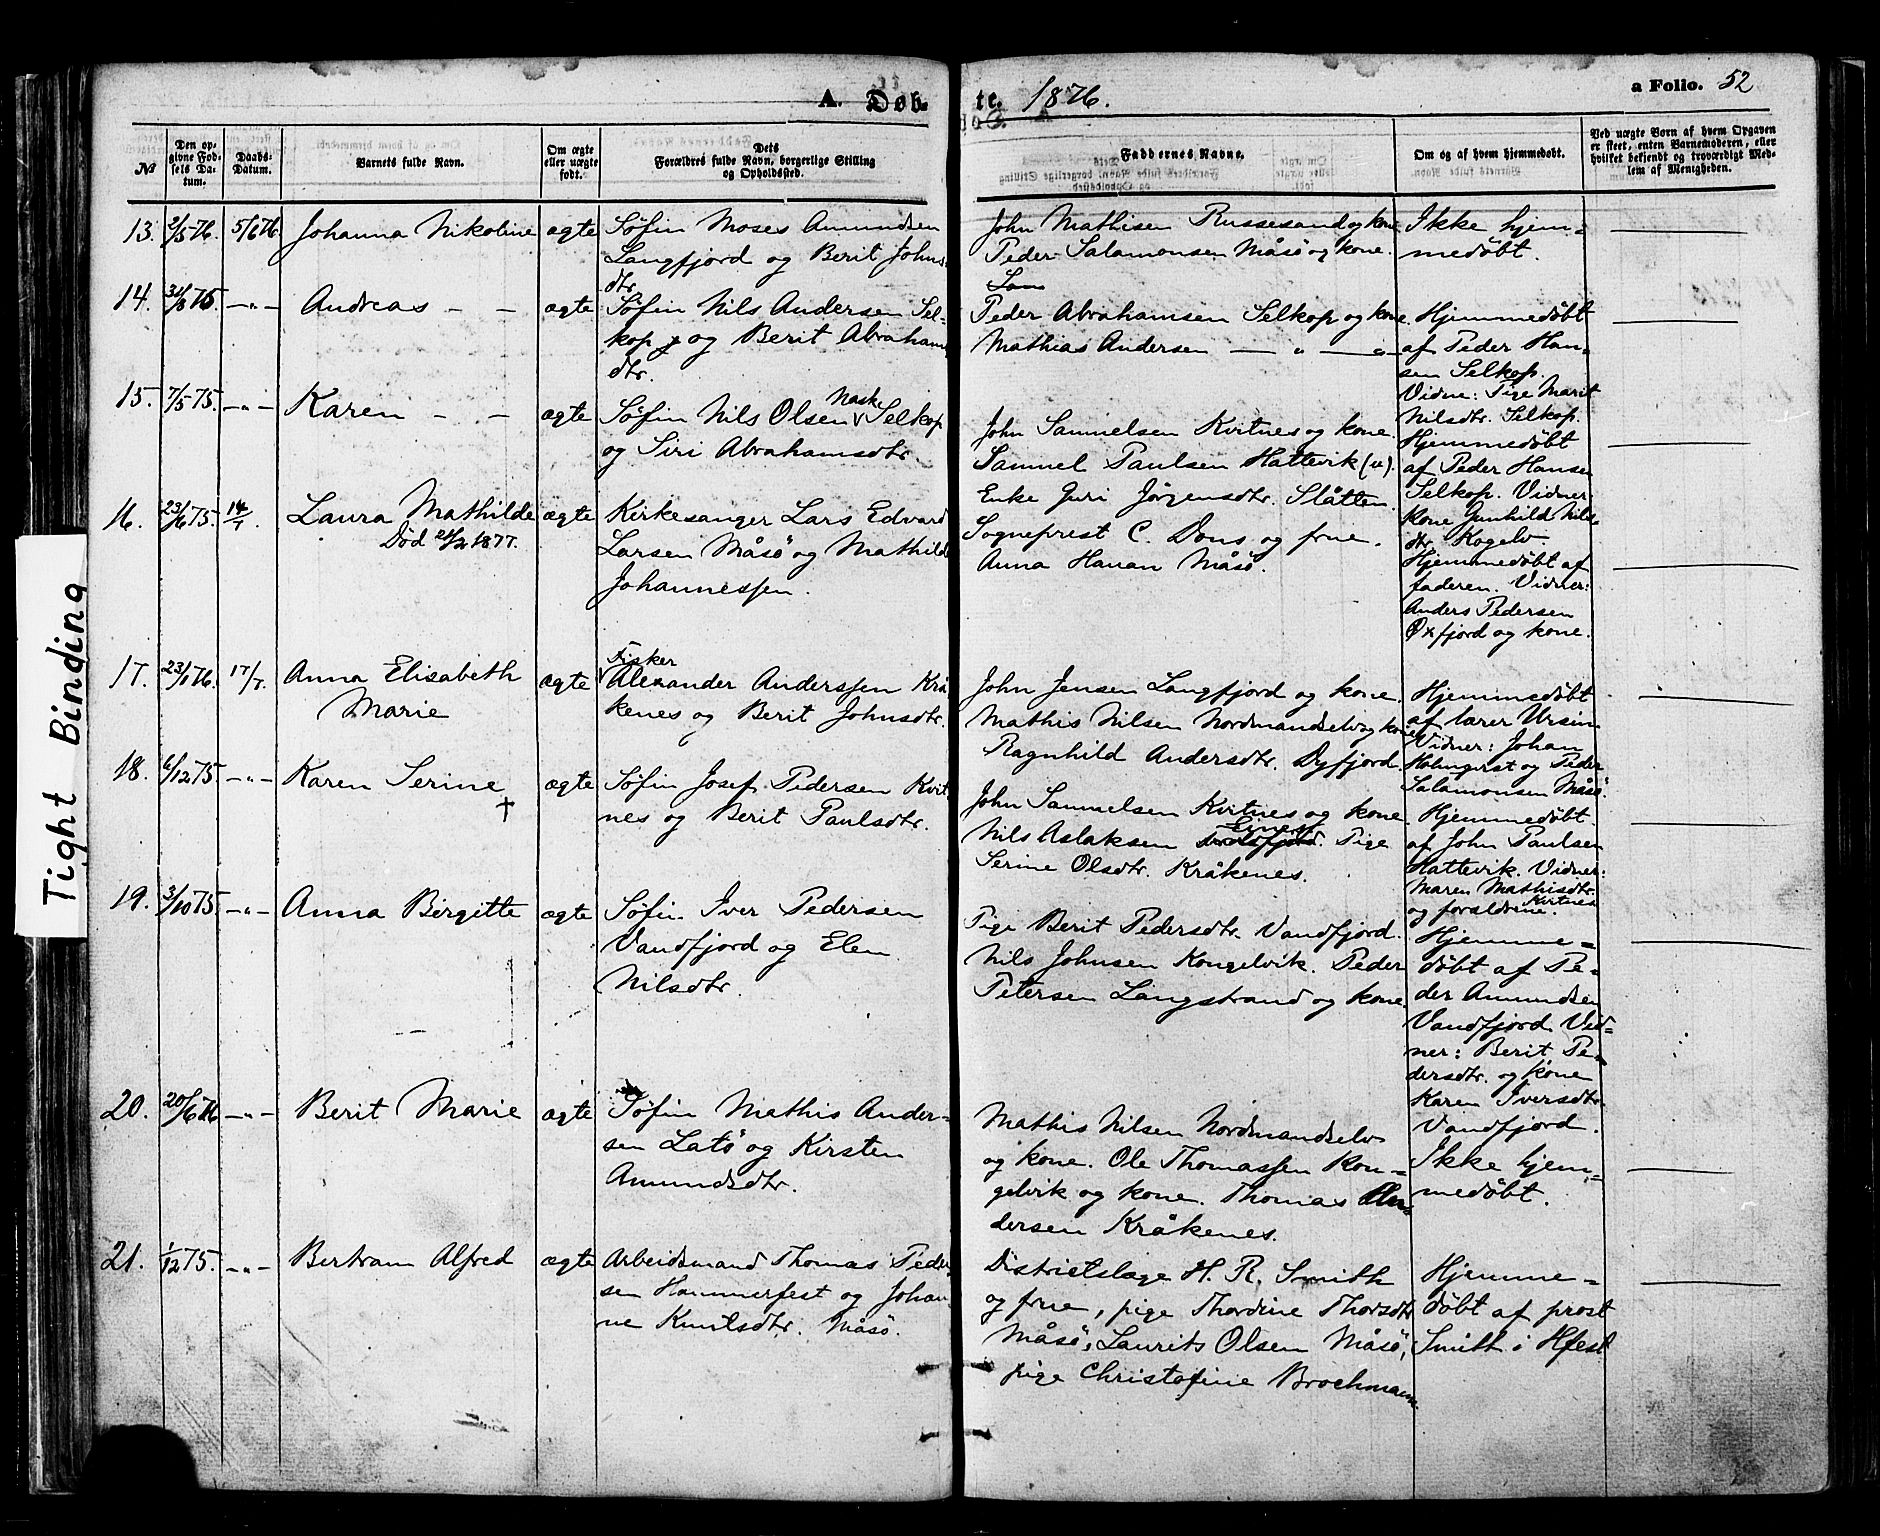 A. Døb- te. 1876. a Folio. 52
№
Den op-
givne Fød-
sels Da-
tum.
Daabs-
Datum.
Barnets fulde Navn.
Om ægte
eller uægte
født.
Dets
Forældres fulde Navn, borgerlige Stilling
og Opholdssted.
Faddernes Navne.
Om og af hvem hjemmedøbt.
Ved uægte Børn af hvem Opgaven
er skeet, enten Barnemoderen, eller
hvilket bekjendt og troværdigt Med-
lem af Menigheden.
13. 2/5 76. 5/6 76. Johanna Nikoline ægte
Søfin Moses Amundsen
Langfjord og Berit Johns-
dtr.
John Mathisen Russesand og kone
Peder Salamonsen Måsø og kone.
Ikke hjem-
medøbt.
14. 31/8 75. -"- Andreas - - ægte
Søfin Nils Andersen Sel-
kop og Berit Abrahams
dtr.
Peder Abrahamsen Selkop og kone.
Mathias Andersen - " - " -
Hjemmedøbt
af Peder Han-
sen Selkop.
Vidne: Pige Marit
Nilsdtr. Selkop.
15. 7/5 75. -"- Karen - - ægte
Søfin Nils Olsen Nask Selkop
og Siri Abrahamsdtr.
John Samuelsen Kvitnes og kone.
Samuel Paulsen Hattevik (u).
Enke Guri Jørgensdtr. Slåtten.
Hjemmedøbt
af Peder Hansen
Selkop. Vidner
Kone Gunhild Nils-
dtr. Kogelv.
16. 23/6 75. 14/7. Laura Mathilde ægte
Død 21/2 1877.
Kirkesanger Lars Edvard
Larsen Måsø og Mathilde
Johannessen.
Sogneprest C. Dons og frue.
Anna Hanan Måsø.
Hjemmedøbt af
faderen. Vidner:
Anders Pedersen
Oxfjord og kone.
17. 23/1 76. 17/7. Anna Elisabeth
Marie
ægte
Fisker
Alexander Anderssen Krå
kenes og Berit Johnsdtr.
John Jensen Langfjord og kone.
Mathis Nilsen Nordmandselv og kone
Ragnhild Andersdtr. Dyfjord.
Hjemmedøbt
af lærer Ursin.
Vidner: Johan
Holmgrest og Peder
Salamonsen Måsø.
18. 6/12 75. -"- Karen Serine † ægte
Søfin Josef Pedersen Kvit
nes og Berit Paulsdtr.
John Samuelsen Kvitnes og kone.
Nils Aslaksen Pige
Serine Olsdtr. Kråkenes.
Hjemmedøbt
af John Paulsen
Hattevik. Vidner:
Maren Mathisdtr.
Kvitnes
og forældrene.
19. 3/10 75. -"- Anna Birgitte ægte
Søfin Iver Pedersen
Vandfjord og Elen
Nilsdtr.
Pige Berit Pedersdtr. Vandfjord.
Nils Johnsen Kongelvik. Peder
Petersen Langstrand og kone.
Hjemme-
døbt af Pe-
der Amundsen
Vandfjord. Vid-
ner: Berit Pe-
dersdtr. og kone
Karen Iversdtr.
Vandfjord.
20. 20/6 76 -"- Berit Marie ægte
Søfin Mathis Ander-
sen Latø og Kirsten
Amundsdtr.
Mathis Nilsen Nordmandselv
og kone. Ole Thomassen Kon-
gelvik og kone. Thomas An-
dersen Kråkenes.
Ikke hjem-
medøbt.
21. 1/12 75. -"- Bertram Alfred ægte
Arbeidsmand Thomas Peder
sen Hammerfest og Johan
ne Knutsdtr. Måsø.
Districtslæge H. R. Smith
og frue, pige Thordine Thorsdtr
Måsø, Laurits Olsen Måsø,
pige Christofine Brochmann.
Hjemme-
døbt af prost
Smitt i Hfest
Tight Binding